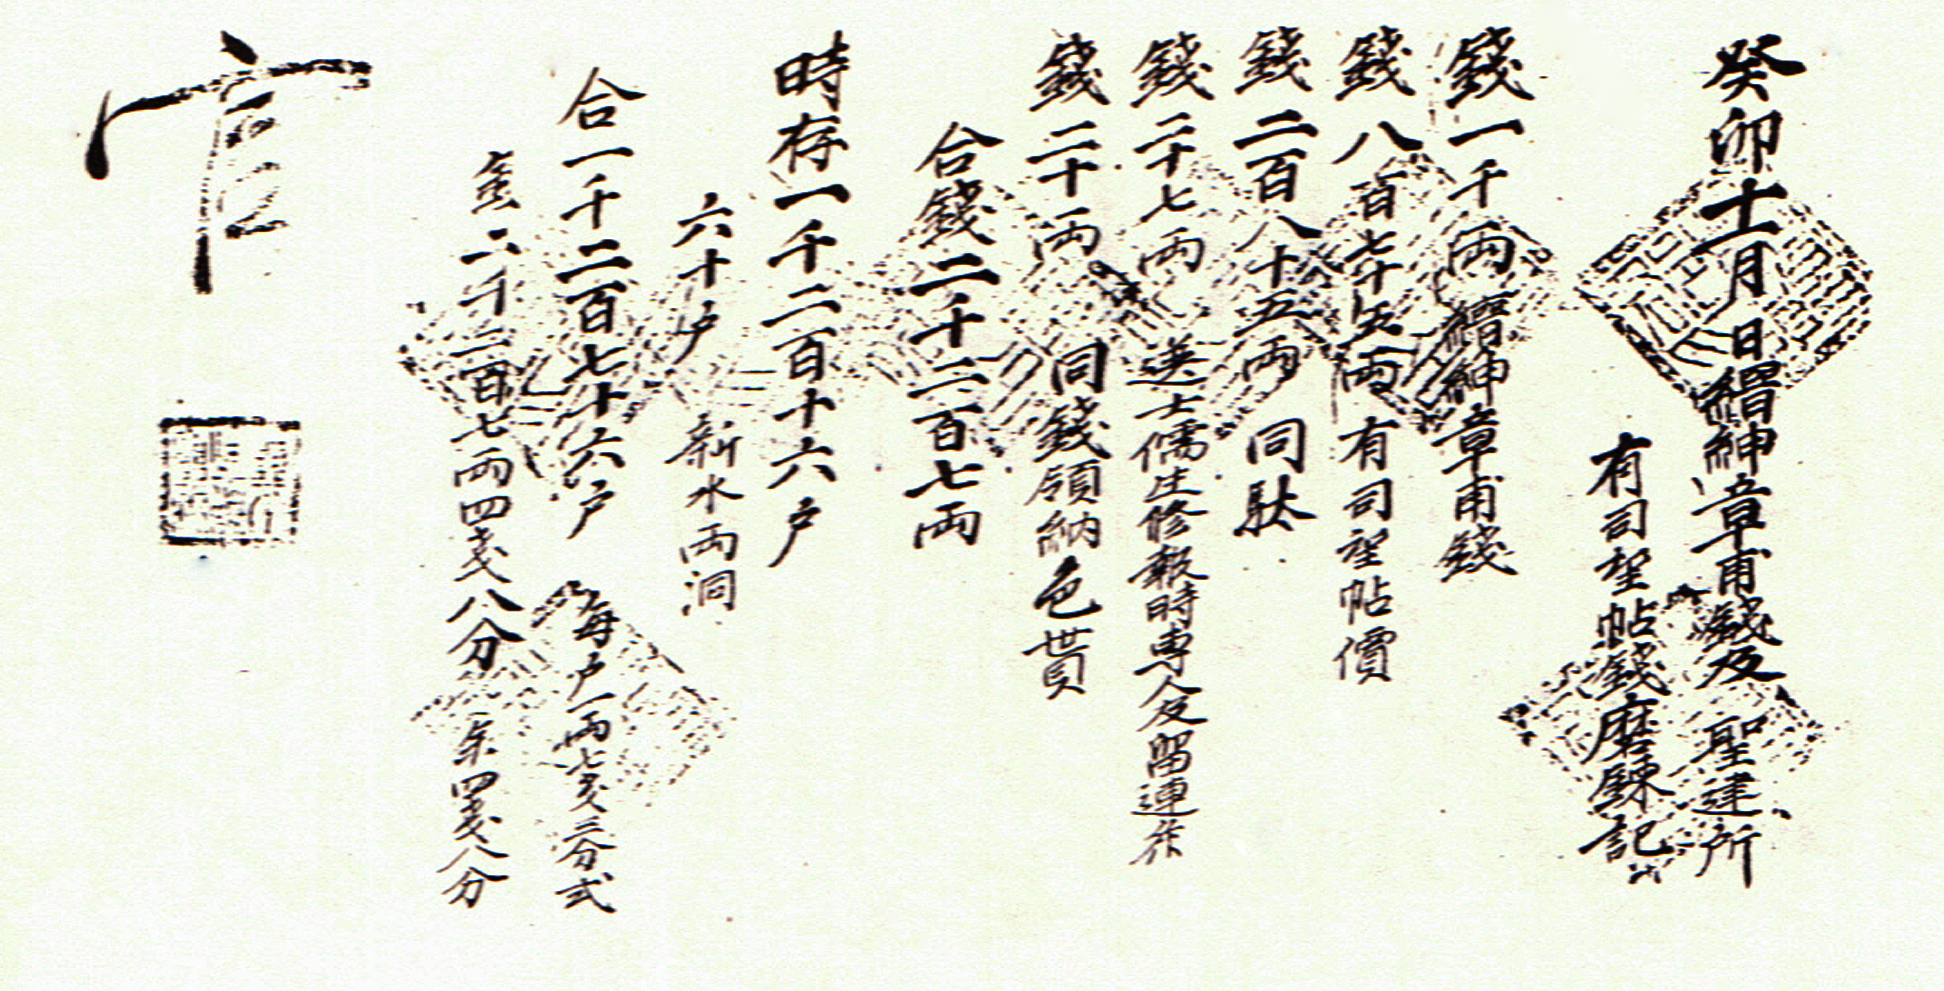 癸卯十一月 日縉紳章甫錢及 聖建所
有司望帖錢磨鍊記
錢一千兩 縉紳章甫錢
錢八百七十五兩 有司望帖價
錢二百八十五兩 同駄
錢二十七兩 送士儒生修報時専人及留連作
錢二十兩 同錢領納色貰
合錢二千二百七兩
時存一千二百十六戶
六十戶 新水兩洞
合一千二百七十六戶 每戶一兩七戔三分式
二千二百七兩四戔八分 余四戔八分
官